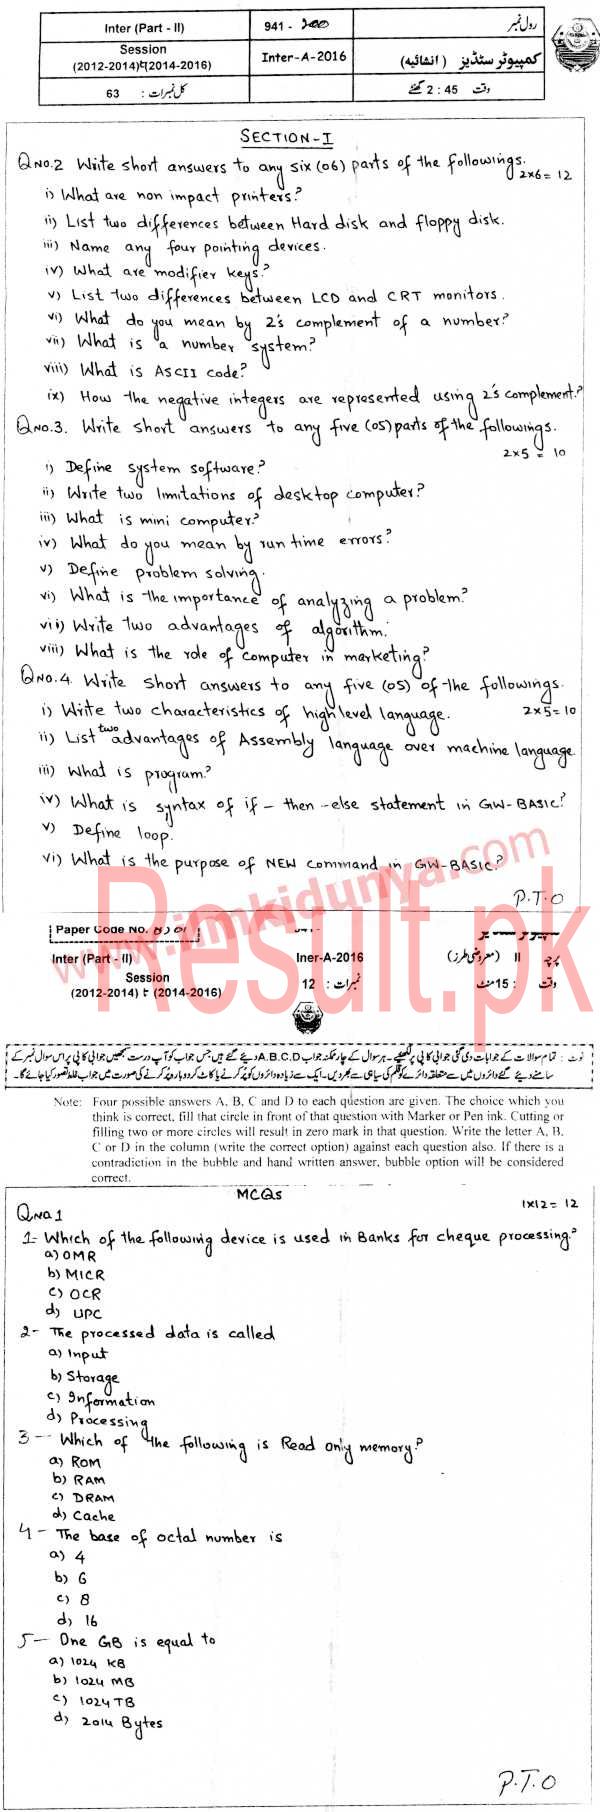 Inter (Part - II)
941 - 200
رول نمبر
Session
(2012-2014)تا(2014-2016)
Inter-A-2016
کمپیوٹر سٹڈیز (انشائیہ)
کل نمبرات : 63
وقت 2 : 45 گھنٹے
SECTION-I
QNO.2 Write short answers to any six (06) parts of the followings.
2x6= 12
i) What are non impact printers?
ii) List two differences between Hard disk and floppy disk.
iii) Name any four pointing devices.
iv) What are modifier keys?
v) List two differences between LCD and CRT monitors.
vi) What do you mean by 2's complement of a number?
vii) What is a number system?
viii) What is ASCII code?
ix) How the negative integers are represented using 2's complement?
QNO.3. Write short answers to any five (05) parts of the followings.
2x5 = 10
i) Define system software?
ii) Write two limitations of desktop computer?
iii) What is mini computer?
iv) What do you mean by run time errors?
v) Define problem solving.
vi) What is the importance of analyzing a problem?
vii) Write two advantages of algorithm.
viii) What is the role of computer in marketing?
QNO.4. Write short answers to any five (05) of the followings.
2x5=10
i) Write two characteristics of high level language.
ii) List two advantages of Assembly language over machine language
iii) What is program?
iv) What is syntax of if - then - else statement in GW-BASIC?
v) Define loop.
vi) What is the purpose of NEW command in GW-BASIC?
P.T.O
Result.pk
www.ilmkidunya.com
Paper Code No.
Inter (Part - II)
Iner-A-2016
پرچہ II (معروضی طرز)
Session
(2012-2014) تا (2014-2016)
نمبرات : 12
وقت : 15 منٹ
نوٹ : تمام سوالات کے جوابات دی گئی جوابی کاپی پر لکھیے۔ ہر سوال کے چار ممکنہ جواب A,B,C,D دیئے گئے ہیں جس جواب کو آپ درست سمجھیں جوابی کاپی پر اس سوال نمبر کے
سامنے دیئے گئے دائروں میں سے متعلقہ دائرے کو قلم کی سیاہی سے بھر دیں۔ ایک سے زیادہ دائروں کو پُر کرنے یا کاٹ کر دوبارہ پُر کرنے کی صورت میں جواب غلط تصور کیا جائے گا۔
Note: Four possible answers A, B, C and D to each question are given. The choice which you
think is correct, fill that circle in front of that question with Marker or Pen ink. Cutting or
filling two or more circles will result in zero mark in that question. Write the letter A, B,
C or D in the column (write the correct option) against each question also. If there is a
contradiction in the bubble and hand written answer, bubble option will be considered
correct.
MCQs
QNO.1
1x12= 12
1- Which of the following device is used in Banks for cheque processing?
a) OMR
b) MICR
c) OCR
d) UPC
2- The processed data is called
a) Input
b) Storage
c) Information
d) Processing
3- Which of the following is Read only memory?
a) ROM
b) RAM
c) DRAM
d) Cache
4- The base of octal number is
a) 4
b) 6
c) 8
d) 16
5- One GB is equal to
a) 1024 KB
b) 1024 MB
c) 1024 TB
d) 2014 Bytes
P.T.O